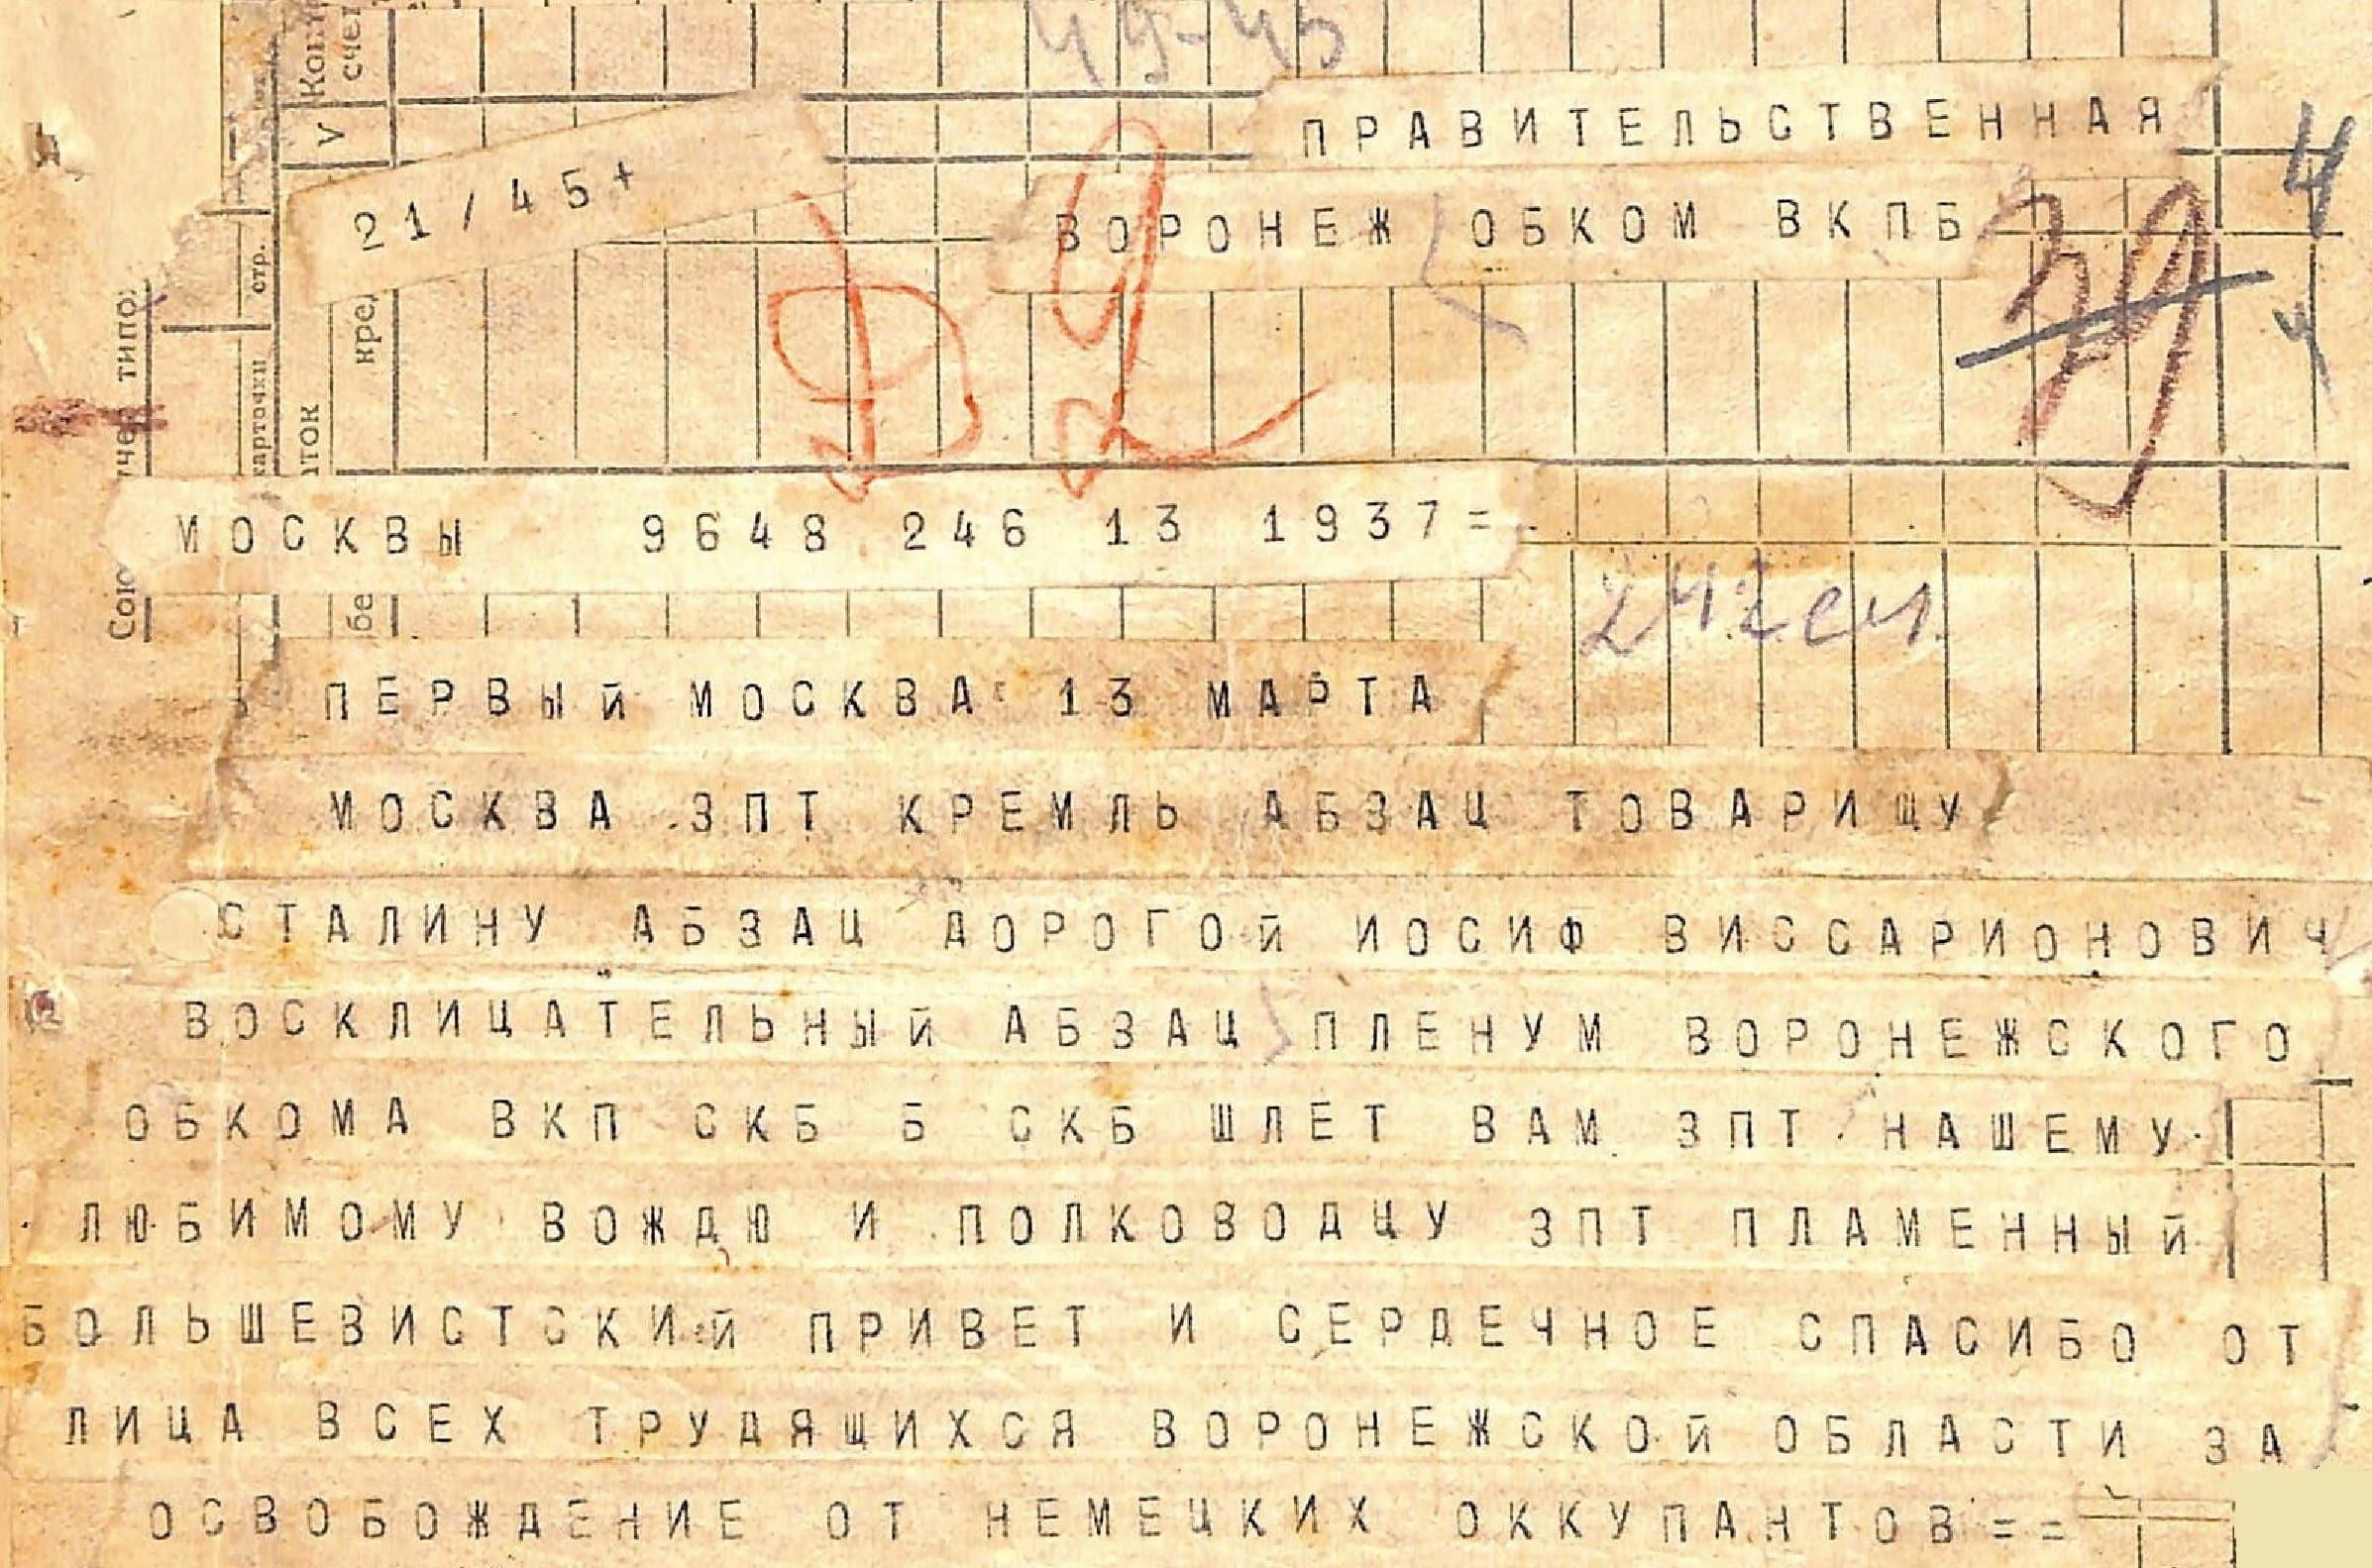 49-45
ПРАВИТЕЛЬСТВЕННАЯ
21/45+
ВОРОНЕЖ ОБКОМ ВКПБ
МОСКВЫ 9648 246 13 1937=
ПЕРВЫЙ МОСКВА 13 МАРТА
МОСКВА ЗПТ КРЕМЛЬ АБЗАЦ ТОВАРИЩУ
СТАЛИНУ АБЗАЦ ДОРОГОЙ ИОСИФ ВИССАРИОНОВИЧ
ВОСКЛИЦАТЕЛЬНЫЙ АБЗАЦ ПЛЕНУМ ВОРОНЕЖСКОГО
ОБКОМА ВКП СКБ Б СКБ ШЛЕТ ВАМ ЗПТ НАШЕМУ
ЛЮБИМОМУ ВОЖДЮ И ПОЛКОВОДЦУ ЗПТ ПЛАМЕННЫЙ
БОЛЬШЕВИСТСКИЙ ПРИВЕТ И СЕРДЕЧНОЕ СПАСИБО ОТ
ЛИЦА ВСЕХ ТРУДЯЩИХСЯ ВОРОНЕЖСКОЙ ОБЛАСТИ ЗА
ОСВОБОЖДЕНИЕ ОТ НЕМЕЦКИХ ОККУПАНТОВ==
стр.
карточки